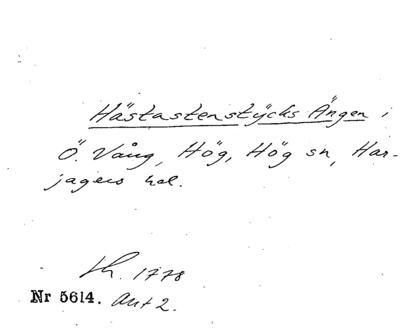 Hästastenstÿcks Ängen i
Ö. Vång, Hög, Hög sn, Har-
jagers hd.
Lh. 1778
Nr 5614. Akt 2.